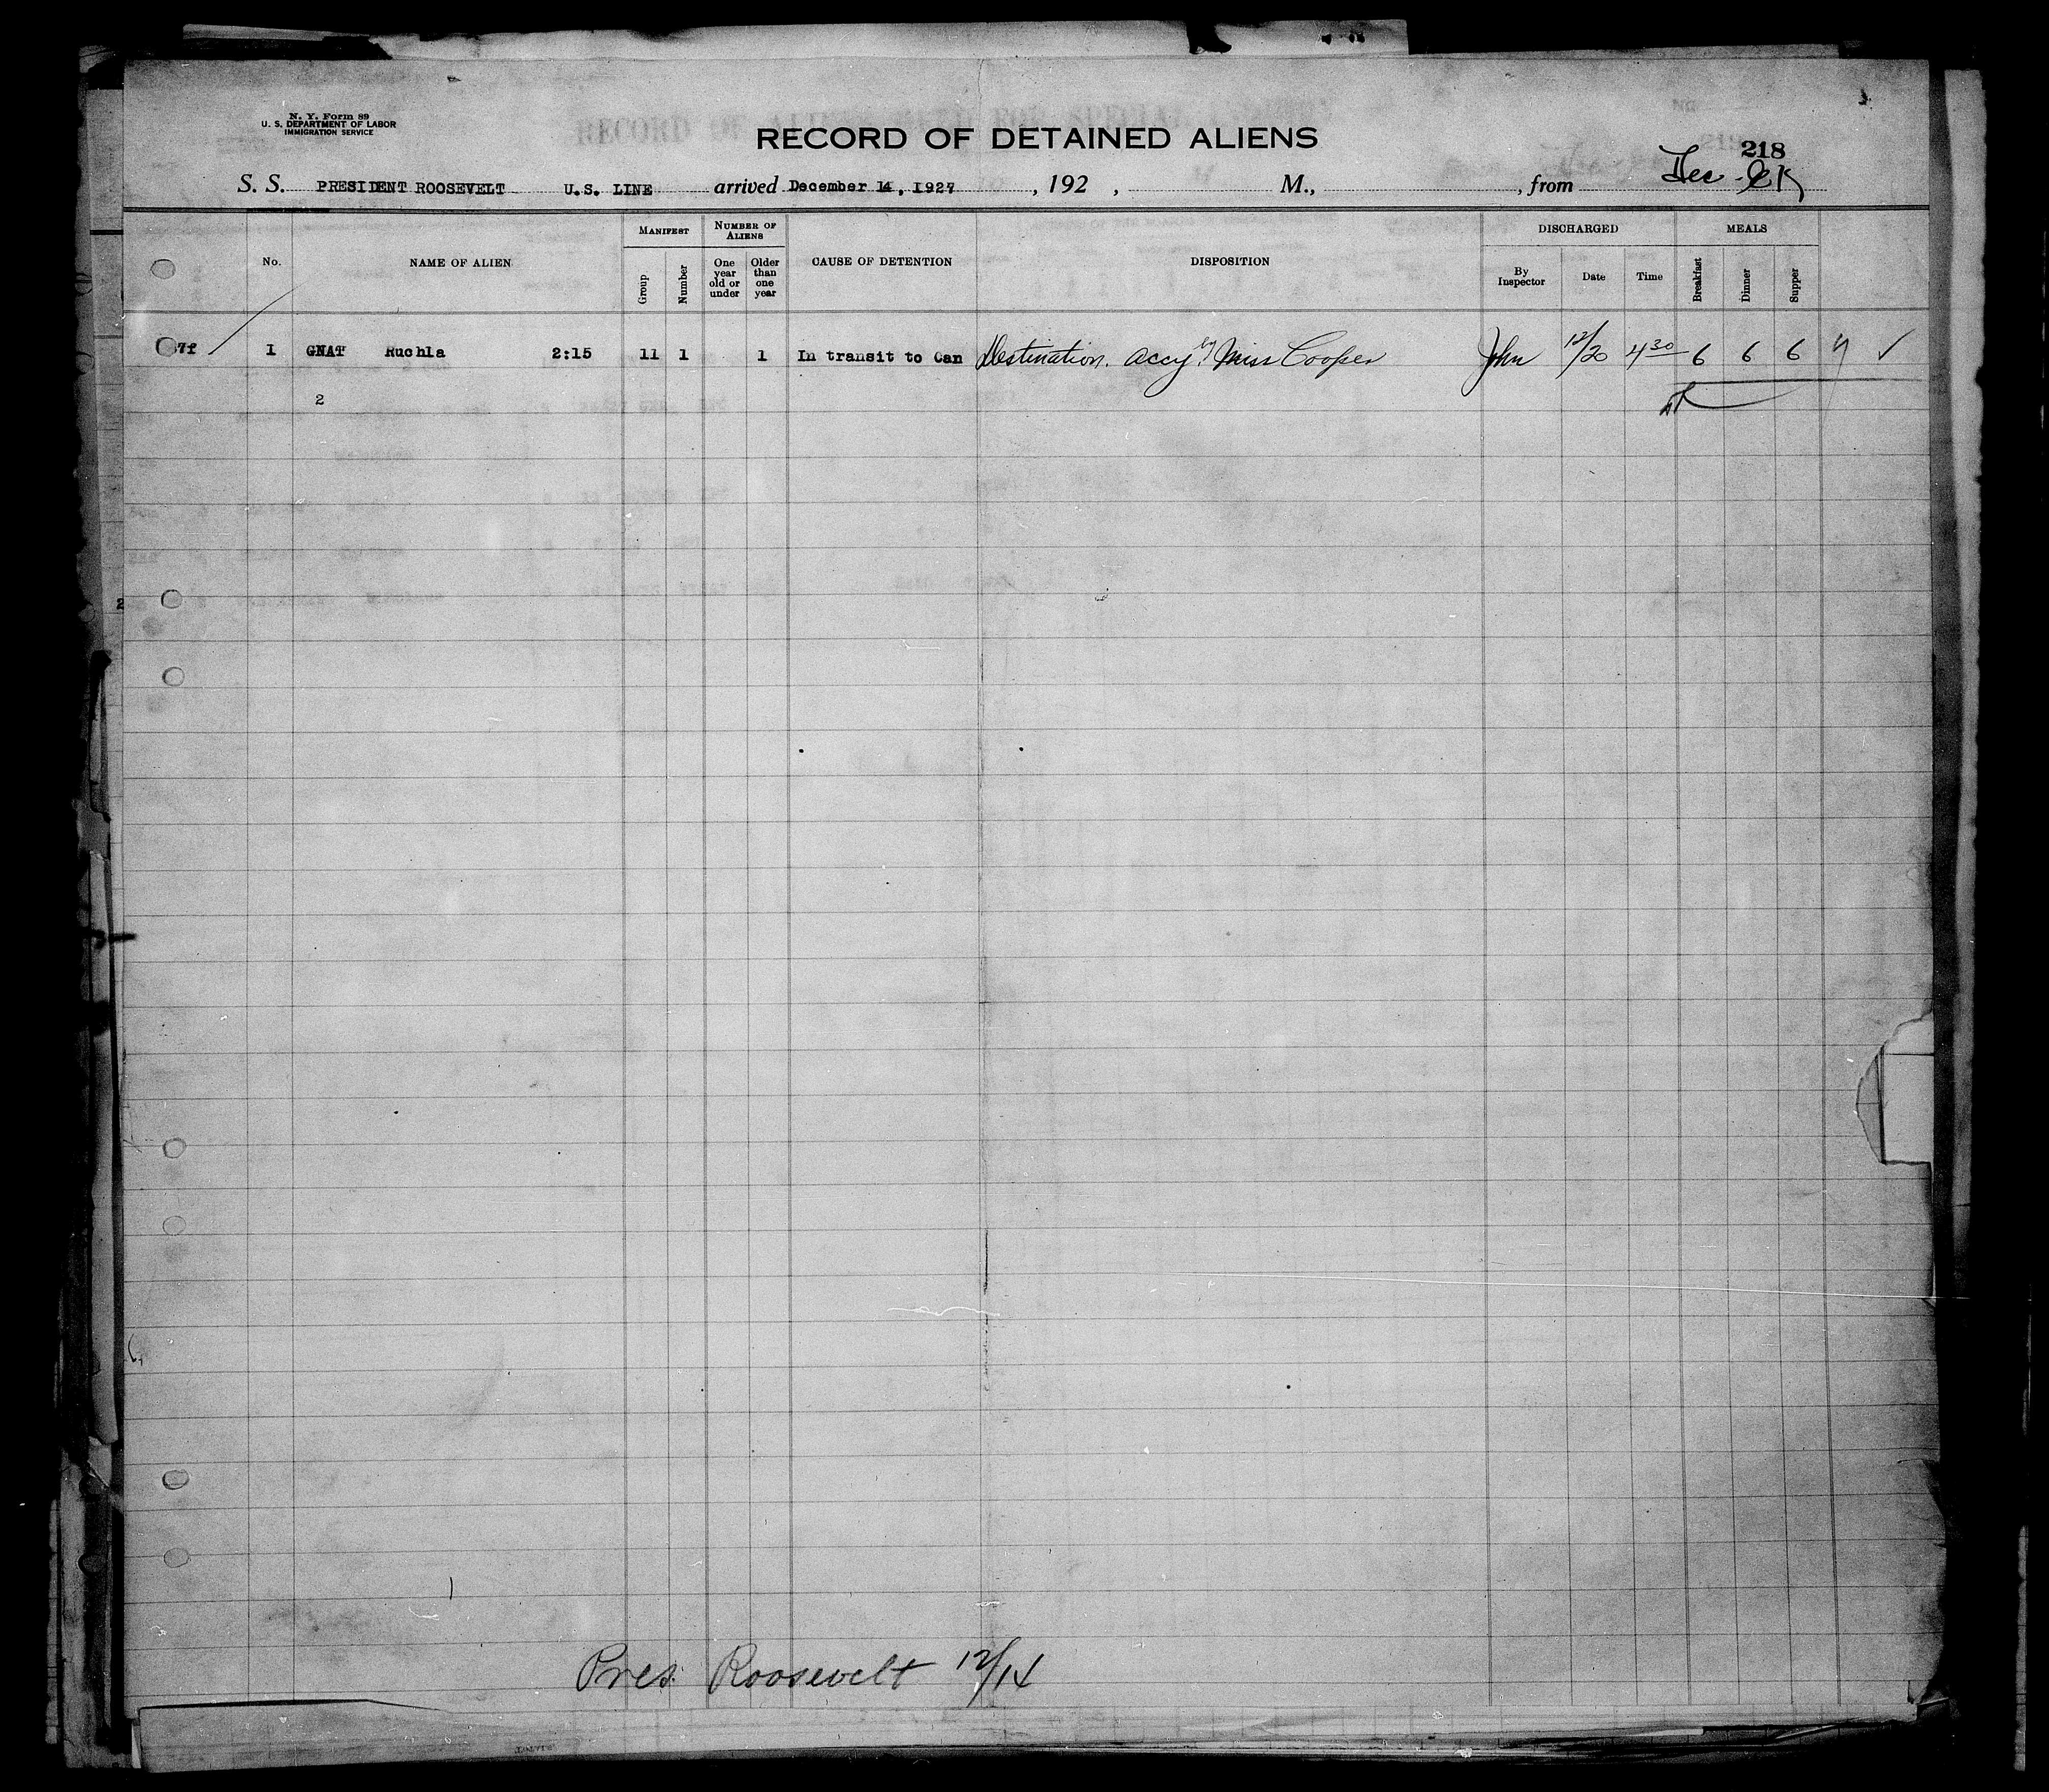 N. Y. Form 89
U. S. DEPARTMENT OF LABOR
IMMIGRATION SERVICE
RECORD OF DETAINED ALIENS
218
S. S. PRESIDENT ROOSEVELT U.S. LINE arrived December 14, 1927, 192 , M., , from Dec -
No.
NAME OF ALIEN
MANIFEST
Group
Number
NUMBER OF ALIENS
One year old or under
Older than one year
CAUSE OF DETENTION
DISPOSITION
DISCHARGED
By Inspector
Date
Time
MEALS
Breakfast
Dinner
Supper
1 GNAT Ruchla 2:15 11 1 1 In transit to Can Destination. accy by Miss Cooper John 12/20 4 30 6 6 6 ✓
2
Pres. Roosevelt 12/14